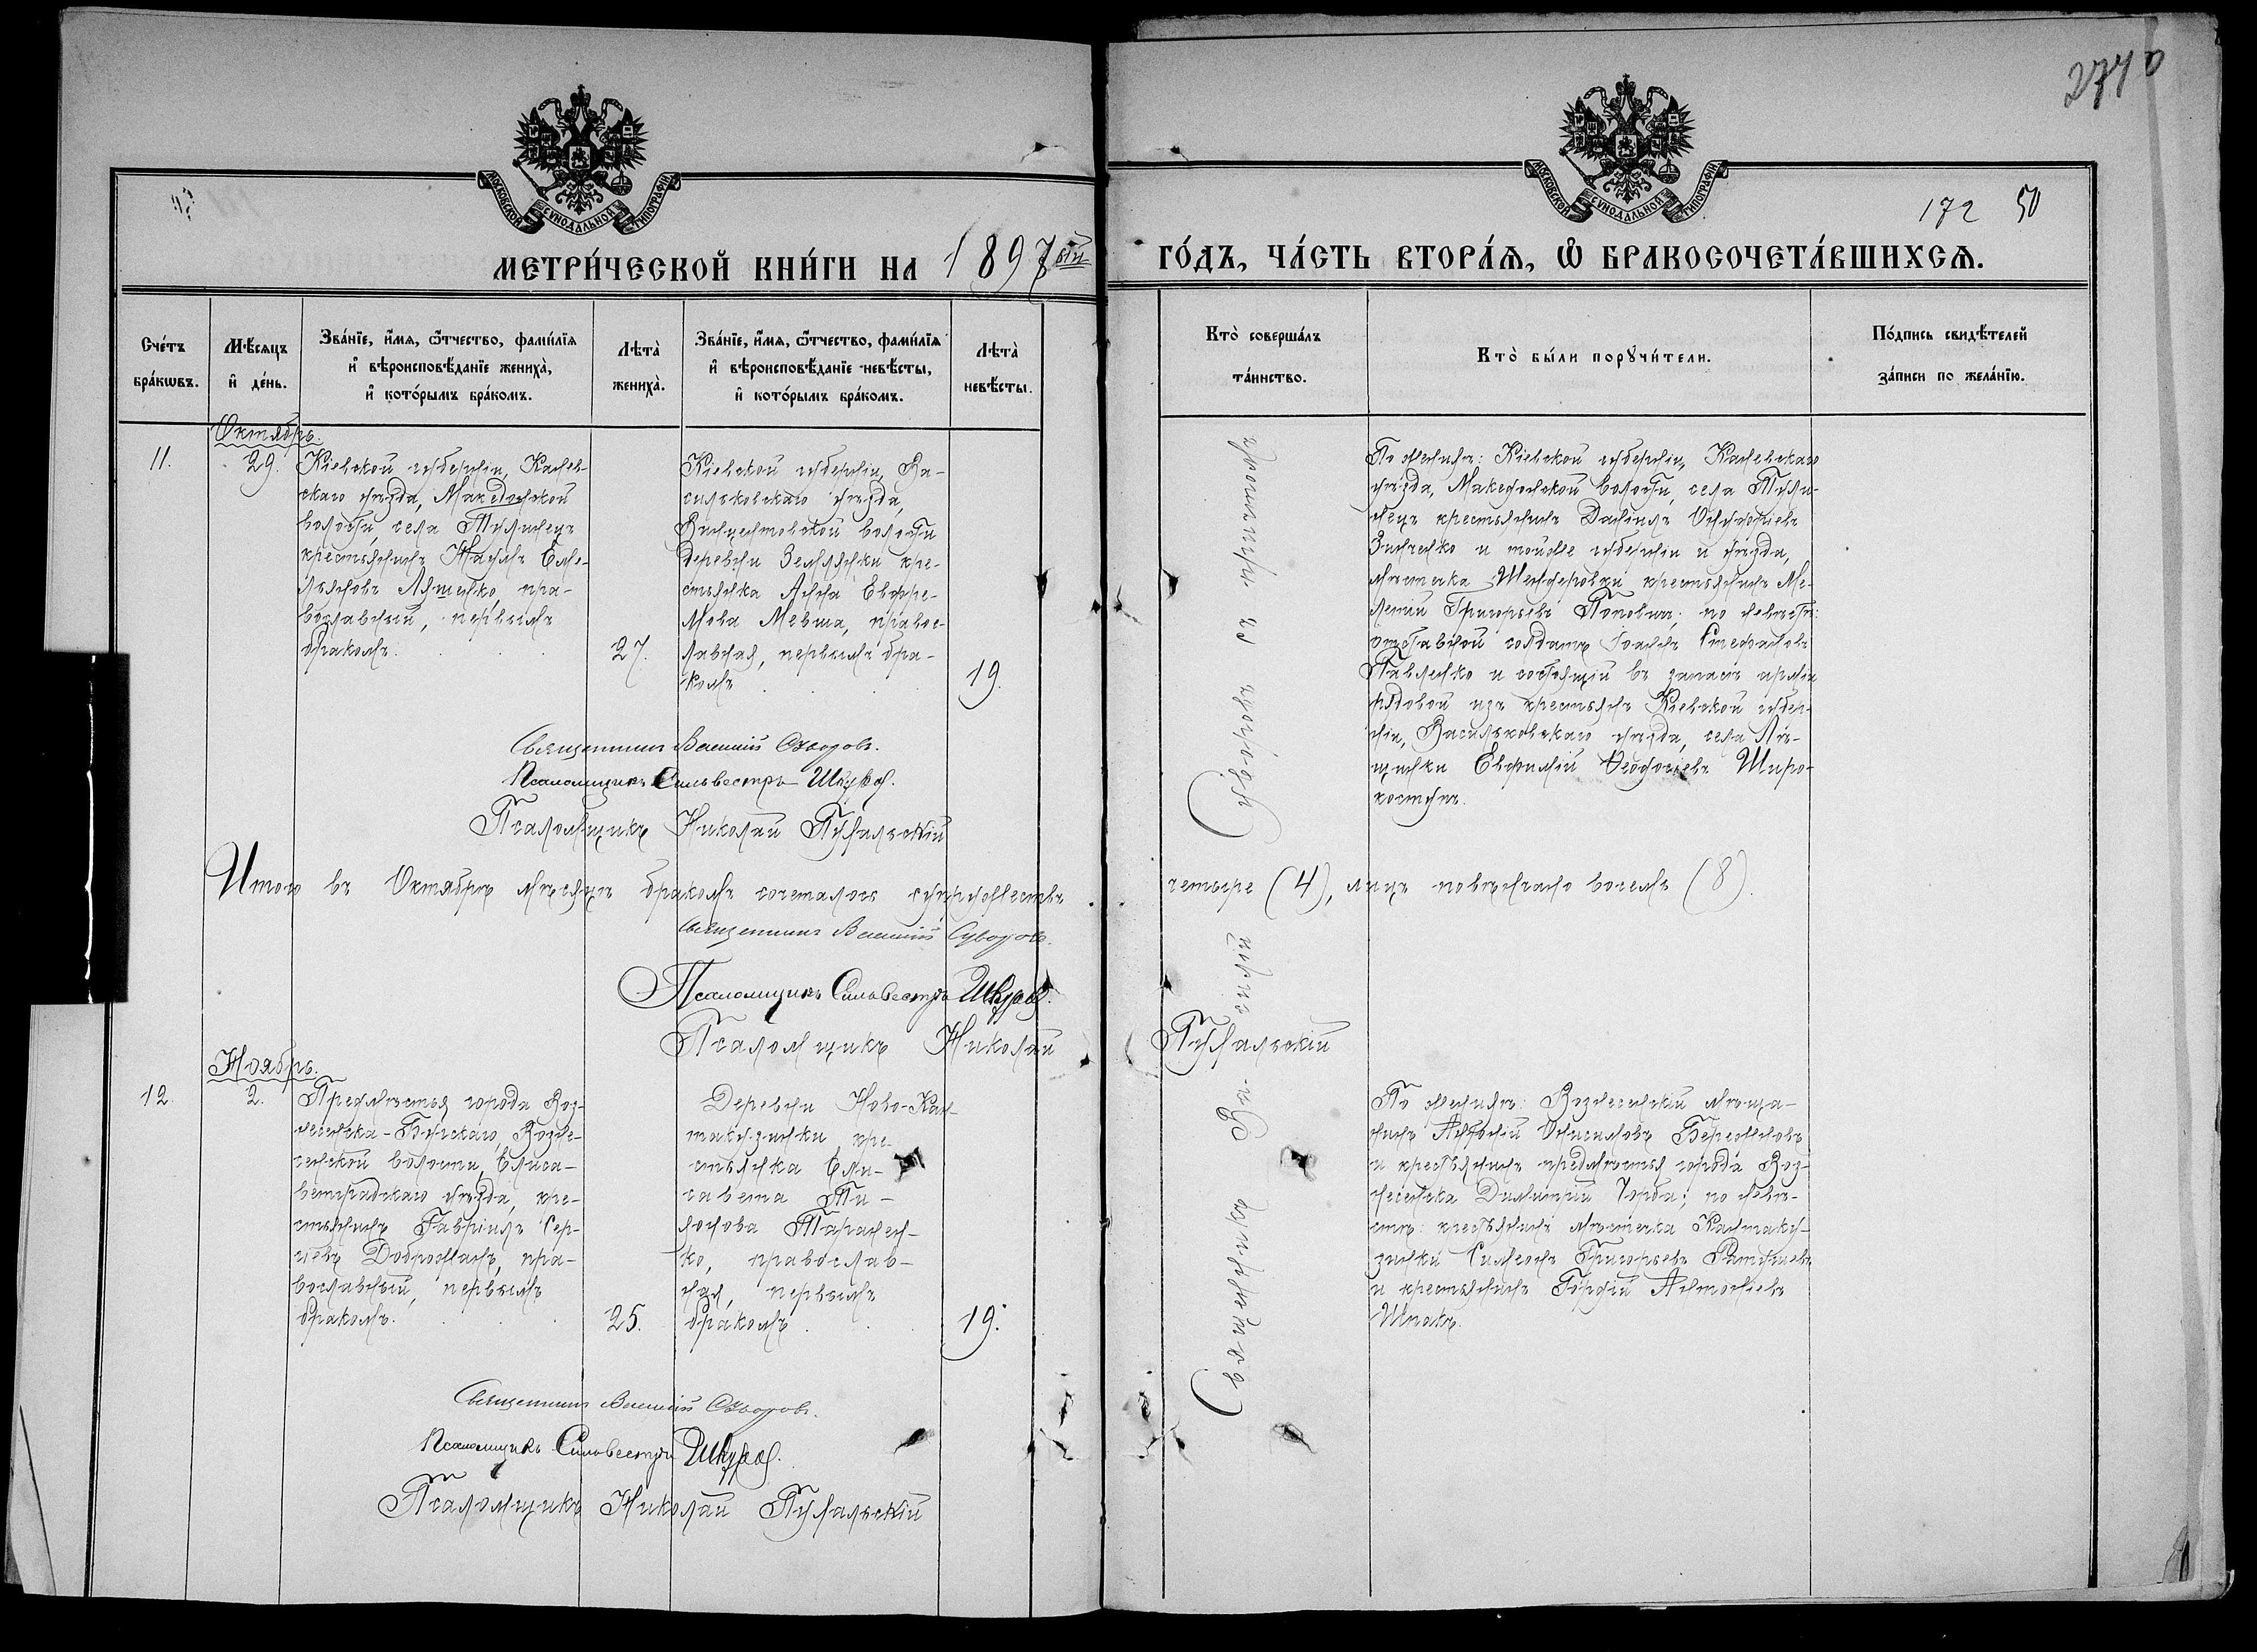 2740
172 50
МОСКОВСКОЙ СУНОДАЛЬНОЙ ТИПОГРАФІИ
МОСКОВСКОЙ СУНОДАЛЬНОЙ ТИПОГРАФІИ
МЕТРИ́ЧЕСКОЙ КНИ́ГИ НА 1897ый ГО́ДЪ, ЧА́СТЬ ВТОРА́Ѧ, Ѽ БРАКОСОЧЕТА́ВШИХСѦ.
Сче́тъ
бра́кѡвъ.
Мѣ́сяцъ
и҆ де́нь.
Зва́нїе, и҆́мѧ, ѻ҆́тчество, фами́лїѧ
и҆ вѣроисповѣ́данїе жениха̀,
и҆ кото́рымъ бра́комъ.
Лѣта̀
жениха̀.
Зва́нїе, и҆́мѧ, ѻ҆́тчество, фами́лїѧ
и҆ вѣроисповѣ́данїе невѣ́сты,
и҆ кото́рымъ бра́комъ.
Лѣта̀
невѣ́сты.
Кто̀ соверша́лъ
та́инство.
Кто̀ бы́ли порꙋчи́тели.
По́дпись свидѣ́телей
за́писи по жела́нїю.
Октябрь.
11.
29.
Кіевской губерніи, Канев-
скаго уѣзда, Македонской
волости, села Тулинецъ
крестьянинъ Іоаннъ Еме-
льяновъ Ляшенко, пра-
вославный, первымъ
бракомъ.
27.
Кіевской губерніи, Ва-
сильковскаго уѣзда,
Винцентовской волости
деревни Землянки кре-
стьянка Анна Евфре-
мова Мевша, правос-
лавная, первымъ бра-
комъ
19.
По женихѣ: Кіевской губерніи, Каневскаго
уѣзда, Македонской волости, села Тули-
нецъ крестьянинъ Даніилъ Онуфріевъ
Зинченко и тойже губерніи и уѣзда,
мѣстечка Шендеровки крестьянинъ Ме-
летій Григорьевъ Поповичъ; по невѣстѣ:
отставной солдатъ Іоаннъ Стефановъ
Павленко и состоящій въ запасѣ арміи
рядовой изъ крестьянъ Кіевской губер-
ніи, Васильковскаго уѣзда, села Лѣ-
щинки Евфимій Ѳеодосіевъ Широ-
коступъ.
Священникъ Василій Суворовъ.
Псаломщикъ Сильвестръ Шкурко.
Псаломщикъ Николай Пухальскій
Итого въ Октябрѣ мѣсяцѣ бракомъ сочеталось супружествъ четыре (4), лицъ повѣнчано восемь (8).
Священникъ Василій Суворовъ.
Псаломщикъ Сильвестръ Шкурко.
Псаломщикъ Николай Пухальскій
Ноябрь.
12.
2.
Предмѣстья города Воз-
несенска-Бугскаго, Возне-
сенской волости, Елиса-
ветградскаго уѣзда, кре-
стьянинъ Гавріилъ Сер-
гіевъ Доброжанъ, пра-
вославный, первымъ
бракомъ.
25.
Деревни Ново-Кан-
такузинки кре-
стьянка Ели-
савета Ти-
монова Таранен-
ко, православ-
ная, первымъ
бракомъ
19.
По женихѣ: Вознесенскій мѣща-
нинъ Антоній Онисимовъ Бережновъ
и крестьянинъ предмѣстья города Воз-
несенска Димитрій Горба; по невѣ-
стѣ: крестьянинъ мѣстечка Кантаку-
зинки Симеонъ Григорьевъ
и крестьянинъ Гордій Антоніевъ
Шпакъ.
Священникъ Василій Суворовъ.
Псаломщикъ Сильвестръ Шкурко.
Псаломщикъ Николай Пухальскій